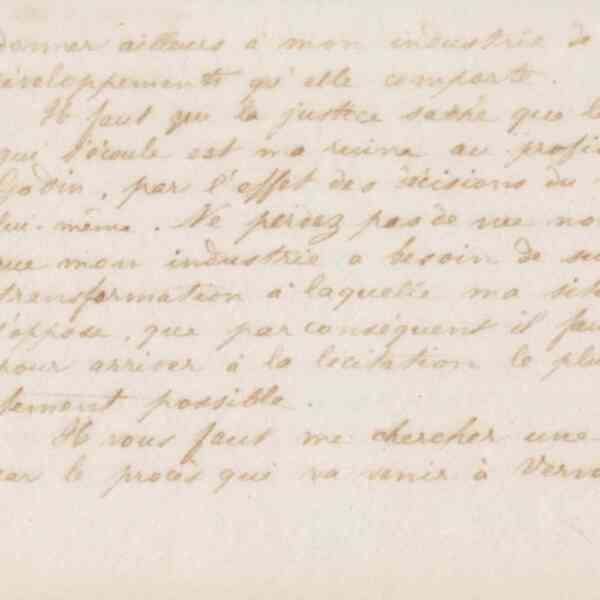 donner ailleurs à mon industrie de
développements qu'elle comporte.
Il faut que la justice sache que le
qui s'écoule est ma ruine au profi
Godin, par l'effet des décisions du
lui-même. Ne perdez pas de vue no
que mon industrie a besoin de su
transformation à laquelle ma situ
s'oppose, que par conséquent il fau
pour arriver à la licitation le plu
possible.
Il vous faut me chercher une
car le procès qui va venir à Verv